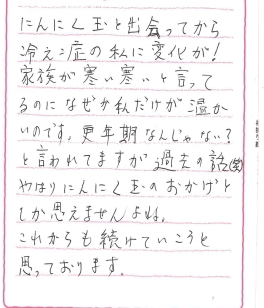 にんにく玉と出会ってから
冷え症の私に変化が!
家族が寒い寒いと言って
るのになぜか私だけが温か
いのです。更年期なんじゃない?
と言われてますが過去の話(笑)
やはりにんにく玉のおかげと
しか思えませんよね。
これからも続けていこうと
思っております。